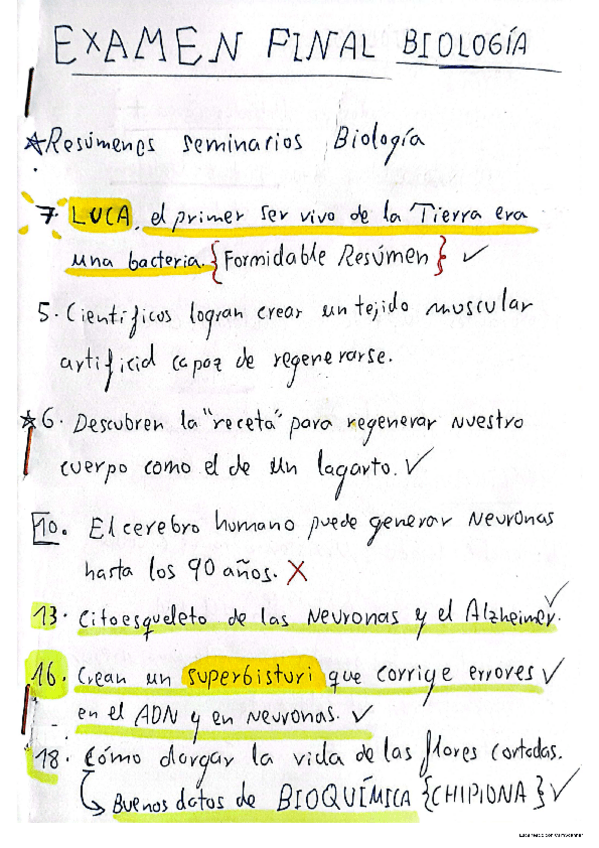 EXAMEN FINAL BIOLOGÍA
☆Resúmenes seminarios Biología
7. LUCA, el primer ser vivo de la Tierra era
una bacteria. {Formidable Resúmen} ✓
5. Científicos logran crear un tejido muscular
artificial capaz de regenerarse.
☆6. Descubren la "receta" para regenerar nuestro
cuerpo como el de un lagarto. ✓
10. El cerebro humano puede generar neuronas
hasta los 90 años. X
13. Citoesqueleto de las neuronas y el Alzheimer. ✓
16. Crean un superbisturi que corrige errores ✓
en el ADN y en neuronas. ✓
18. Cómo alargar la vida de las flores cortadas.
↳ Buenos datos de BIOQUÍMICA {CHIPIONA} ✓